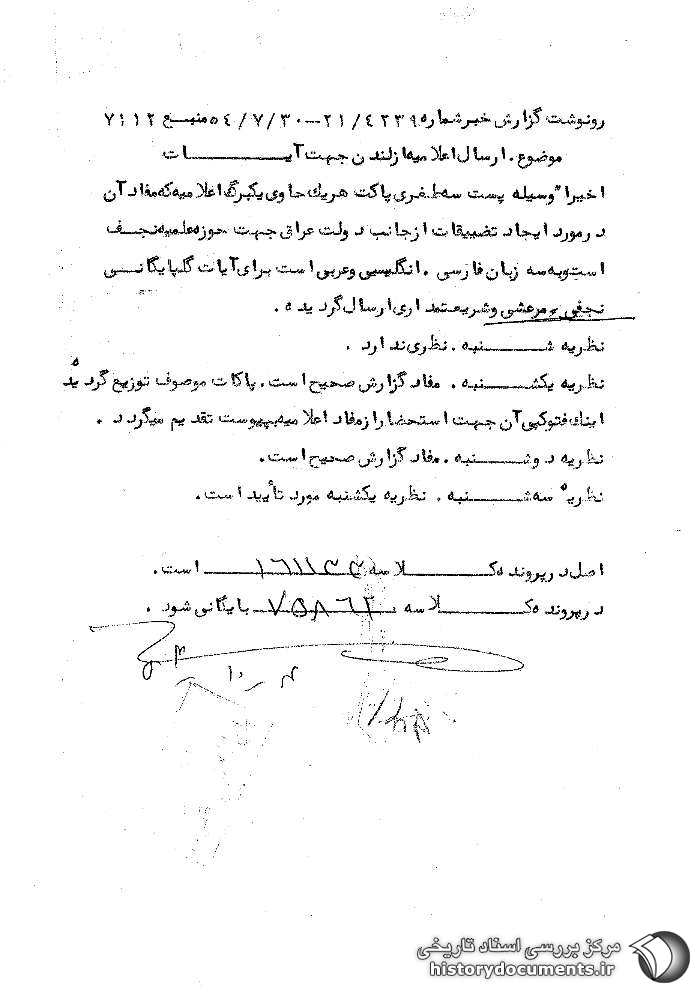 رونوشت گزارش خبر شماره ۲۱/٤۲۳۹ – ۵٤/۷/۳۰ منبع ۷۱۱۲
موضوع . ارسال اعلامیه از لندن جهت آیـــات
اخیرا" وسیله پست سه طغری پاکت هریك حاوی یکبرگ اعلامیه که مفاد آن
در مورد ایجاد تضییقات از جانب دولت عراق جهت حوزه علمیه نجف
است و به سه زبان فارسی . انگلیسی و عربی است برای آیات گلپایگانی
نجفی مرعشی و شریعتمداری ارسال گردیده .
نظریه شـــنبه . نظری ندارد .
نظریه یکشـــنبه . مفاد گزارش صحیح است . پاکات موصوف توزیع گردیده
اینك فتوکپی آن جهت استحضار از مفاد اعلامیه بپیوست تقدیم میگردد .
نظریه دوشـــنبه . مفاد گزارش صحیح است .
نظریه سه شـــنبه . نظریه یکشنبه مورد تأیید است .
اصل در پرونده کـــلاسه است .
در پرونده کـــلاسه ۷۵۸٦۲ بایگانی شود .
مرکز بررسی اسناد تاریخی
historydocuments.ir